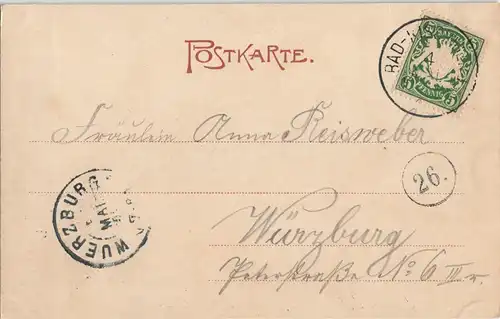 POSTKARTE.
RAD-
BAYERN
5 PFENNIG 5
Fräulein Anna Reisweber
26.
WUERZBURG
MAI
Würzburg
Peterstraße No 6 III r.